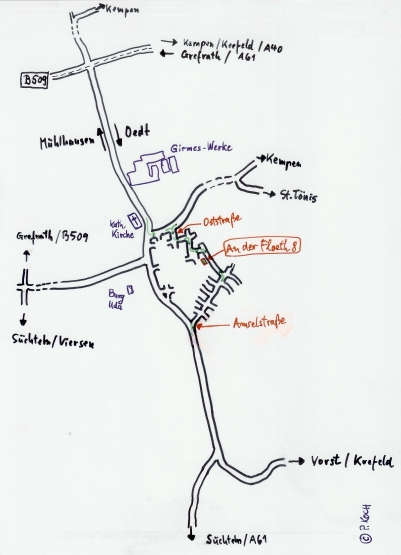 Kempen
Kempen/Krefeld/A40
Grefrath/A61
B509
Mühlhausen
Oedt
Girmes-Werke
Kempen
St.Tönis
Kath.
Kirche
Oststraße
Grefrath/B509
An der Floeth 8
Burg
Uda
Amselstraße
Süchteln/Viersen
Vorst/Krefeld
Süchteln/A61
© P. Koch